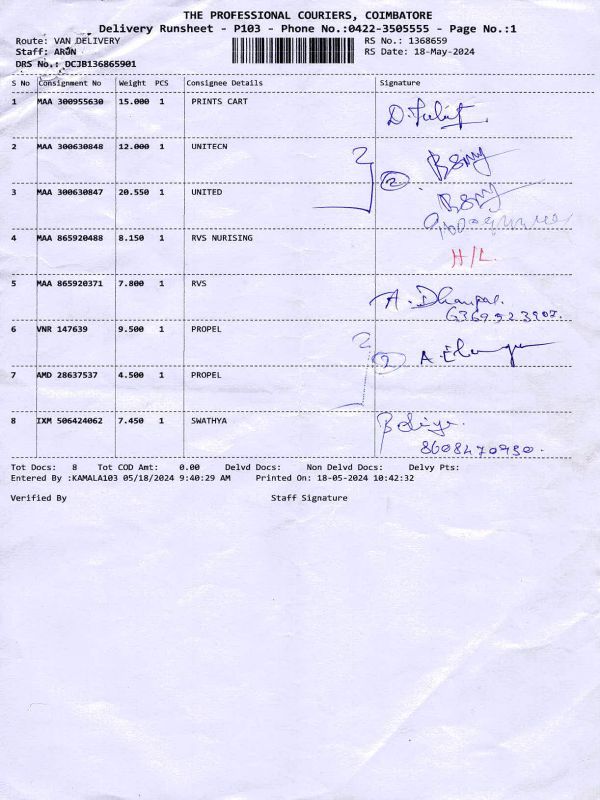 THE PROFESSIONAL COURIERS, COIMBATORE
Delivery Runsheet - P103 - Phone No.:0422-3505555 - Page No.:1
Route: VAN DELIVERY RS No.: 1368659
Staff: ARUN RS Date: 18-May-2024
DRS No.: DCJB136865901
S No Consignment No Weight PCS Consignee Details Signature
1 MAA 300955630 15.000 1 PRINTS CART
2 MAA 300630848 12.000 1 UNITECN
2
3 MAA 300630847 20.550 1 UNITED
4 MAA 865920488 8.150 1 RVS NURISING H/L.
5 MAA 865920371 7.800 1 RVS A. Dhanpal.
6369923907.
6 VNR 147639 9.500 1 PROPEL
2
7 AMD 28637537 4.500 1 PROPEL
8 IXM 506424062 7.450 1 SWATHYA
8608470950.
Tot Docs: 8 Tot COD Amt: 0.00 Delvd Docs: Non Delvd Docs: Delvy Pts:
Entered By :KAMALA103 05/18/2024 9:40:29 AM Printed On: 18-05-2024 10:42:32
Verified By Staff Signature